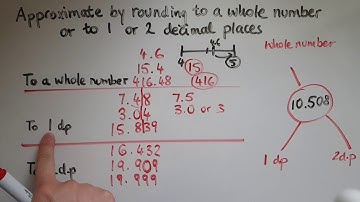 Approximate by rounding to a whole number
or to 1 or 2 decimal places
4.6
4.6
15.4
4 15 5
Whole number
To a whole number 416.48 416
7.48 7.5
10.508
3.04 3.0 or 3
To 1 dp 15.839
16.432
1 dp 2dp
19.909
d.p
19.999